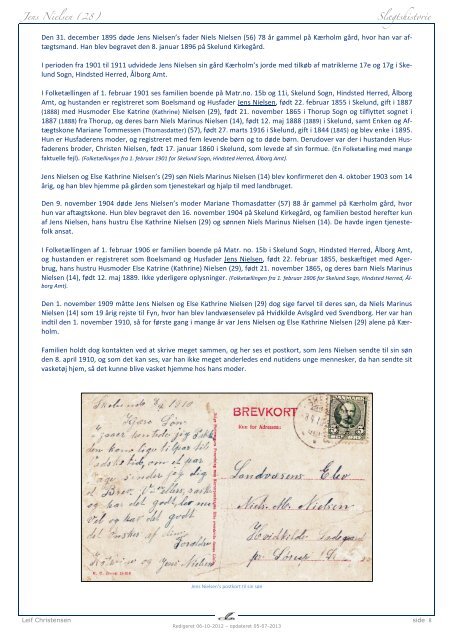 Jens Nielsen (28)
Slægtshistorie
Den 31. december 1895 døde Jens Nielsen’s fader Niels Nielsen (56) 78 år gammel på Kærholm gård, hvor han var af-
tægtsmand. Han blev begravet den 8. januar 1896 på Skelund Kirkegård.
I perioden fra 1901 til 1911 udvidede Jens Nielsen sin gård Kærholm’s jorde med tilkøb af matriklerne 17e og 17g i Ske-
lund Sogn, Hindsted Herred, Ålborg Amt.
I Folketællingen af 1. februar 1901 ses familien boende på matr.no. 15b og 11i, Skelund Sogn, Hindsted Herred, Ålborg
Amt, og hustanden er registreret som Boelsmand og Husfader Jens Nielsen, født 22. februar 1855 i Skelund, gift i 1887
(1888) med Husmoder Else Katrine (Kathrine) Nielsen (29), født 21. november 1865 i Thorup Sogn og tilflyttet sognet i
1887 (1888) fra Thorup, og deres barn Niels Marinus (14), født 12. maj 1888 (1889) i Skelund, samt Enken og Af-
tægtskone Mariane Tommessen (Thomasdatter) (57), født 27. marts 1916 i Skelund, gift i 1844 (1845) og blev enke i 1895.
Hun er Husfaderens moder, og registreret med fem levende børn og to døde børn. Derudover var der i husstanden Hus-
faderens broder, Christen Nielsen, født 17. januar 1860 i Skelund, som levede af sin formue. (En Folketælling med mange
faktuelle fejl). (Folketællingen fra 1. februar 1901 for Skelund Sogn, Hindsted Herred, Ålborg Amt).
Jens Nielsen og Else Kathrine Nielsen’s (29) søn Niels Marinus Nielsen (14) blev konfirmeret den 4. oktober 1903 som 14
årig, og han blev hjemme på gården som tjenestekarl og hjalp til med landbruget.
Den 9. november 1904 døde Jens Nielsen’s moder Mariane Thomasdatter (57) 88 år gammel på Kærholm gård, hvor
hun var aftægtskone. Hun blev begravet den 16. november 1904 på Skelund Kirkegård, og familien bestod herefter kun
af Jens Nielsen, hans hustru Else Kathrine Nielsen (29) og sønnen Niels Marinus Nielsen (14). De havde ingen tjeneste-
folk ansat.
I Folketællingen af 1. februar 1906 er familien boende på Matr. no. 15b i Skelund Sogn, Hindsted Herred, Ålborg Amt,
og hustanden er registreret som Boelsmand og Husfader Jens Nielsen, født 22. februar 1855, beskæftiget med Ager-
brug, hans hustru Husmoder Else Katrine (Kathrine) Nielsen (29), født 21. november 1865, og deres barn Niels Marinus
Nielsen (14), født 12. maj 1889. Ikke yderligere oplysninger. (Folketællingen fra 1. februar 1906 for Skelund Sogn, Hindsted Herred, Ål-
borg Amt).
Den 1. november 1909 måtte Jens Nielsen og Else Kathrine Nielsen (29) dog sige farvel til deres søn, da Niels Marinus
Nielsen (14) som 19 årig rejste til Fyn, hvor han blev landvæsenselev på Hvidkilde Avlsgård ved Svendborg. Her var han
indtil den 1. november 1910, så for første gang i mange år var Jens Nielsen og Else Kathrine Nielsen (29) alene på Kær-
holm.
Familien holdt dog kontakten ved at skrive meget sammen, og her ses et postkort, som Jens Nielsen sendte til sin søn
den 8. april 1910, og som det kan ses, var han ikke meget anderledes end nutidens unge mennesker, da han sendte sit
vasketøj hjem, så det kunne blive vasket hjemme hos hans moder.
Skelund 8/4 1910
Kjære Søn
BREVKORT
Kun for Adressen:
DANMARK
Landvæsens Elev
Niels M. Nielsen
Hvidkilde
pr.
og Jens Nielsen
Jens Nielsen’s postkort til sin søn
Leif Christensen
side 8
Redigeret 06-10-2012 – opdateret 05-07-2013